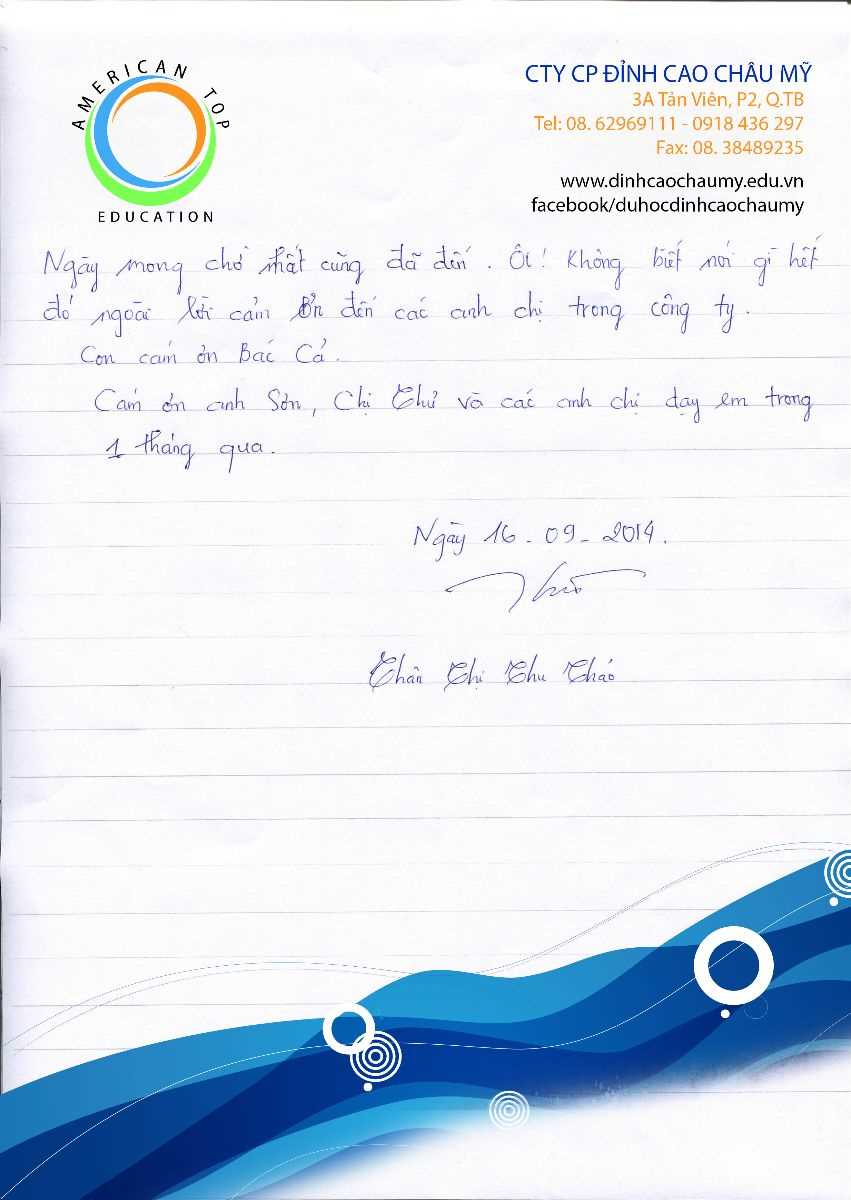 AMERICAN TOP
EDUCATION
CTY CP ĐỈNH CAO CHÂU MỸ
3A Tản Viên, P2, Q.TB
Tel: 08. 62969111 - 0918 436 297
Fax: 08. 38489235
www.dinhcaochaumy.edu.vn
facebook/duhocdinhcaochaumy
Ngày mong chờ nhất cũng đã đến. Ôi! Không biết nói gì hết
đó ngoài lời cảm ơn đến các anh chị trong công ty.
Con cám ơn Bác Cả.
Cám ơn anh Sơn, Chị Thư và các anh chị dạy em trong
1 tháng qua.
Ngày 16-09-2014.
Thân Thị Thu Thảo